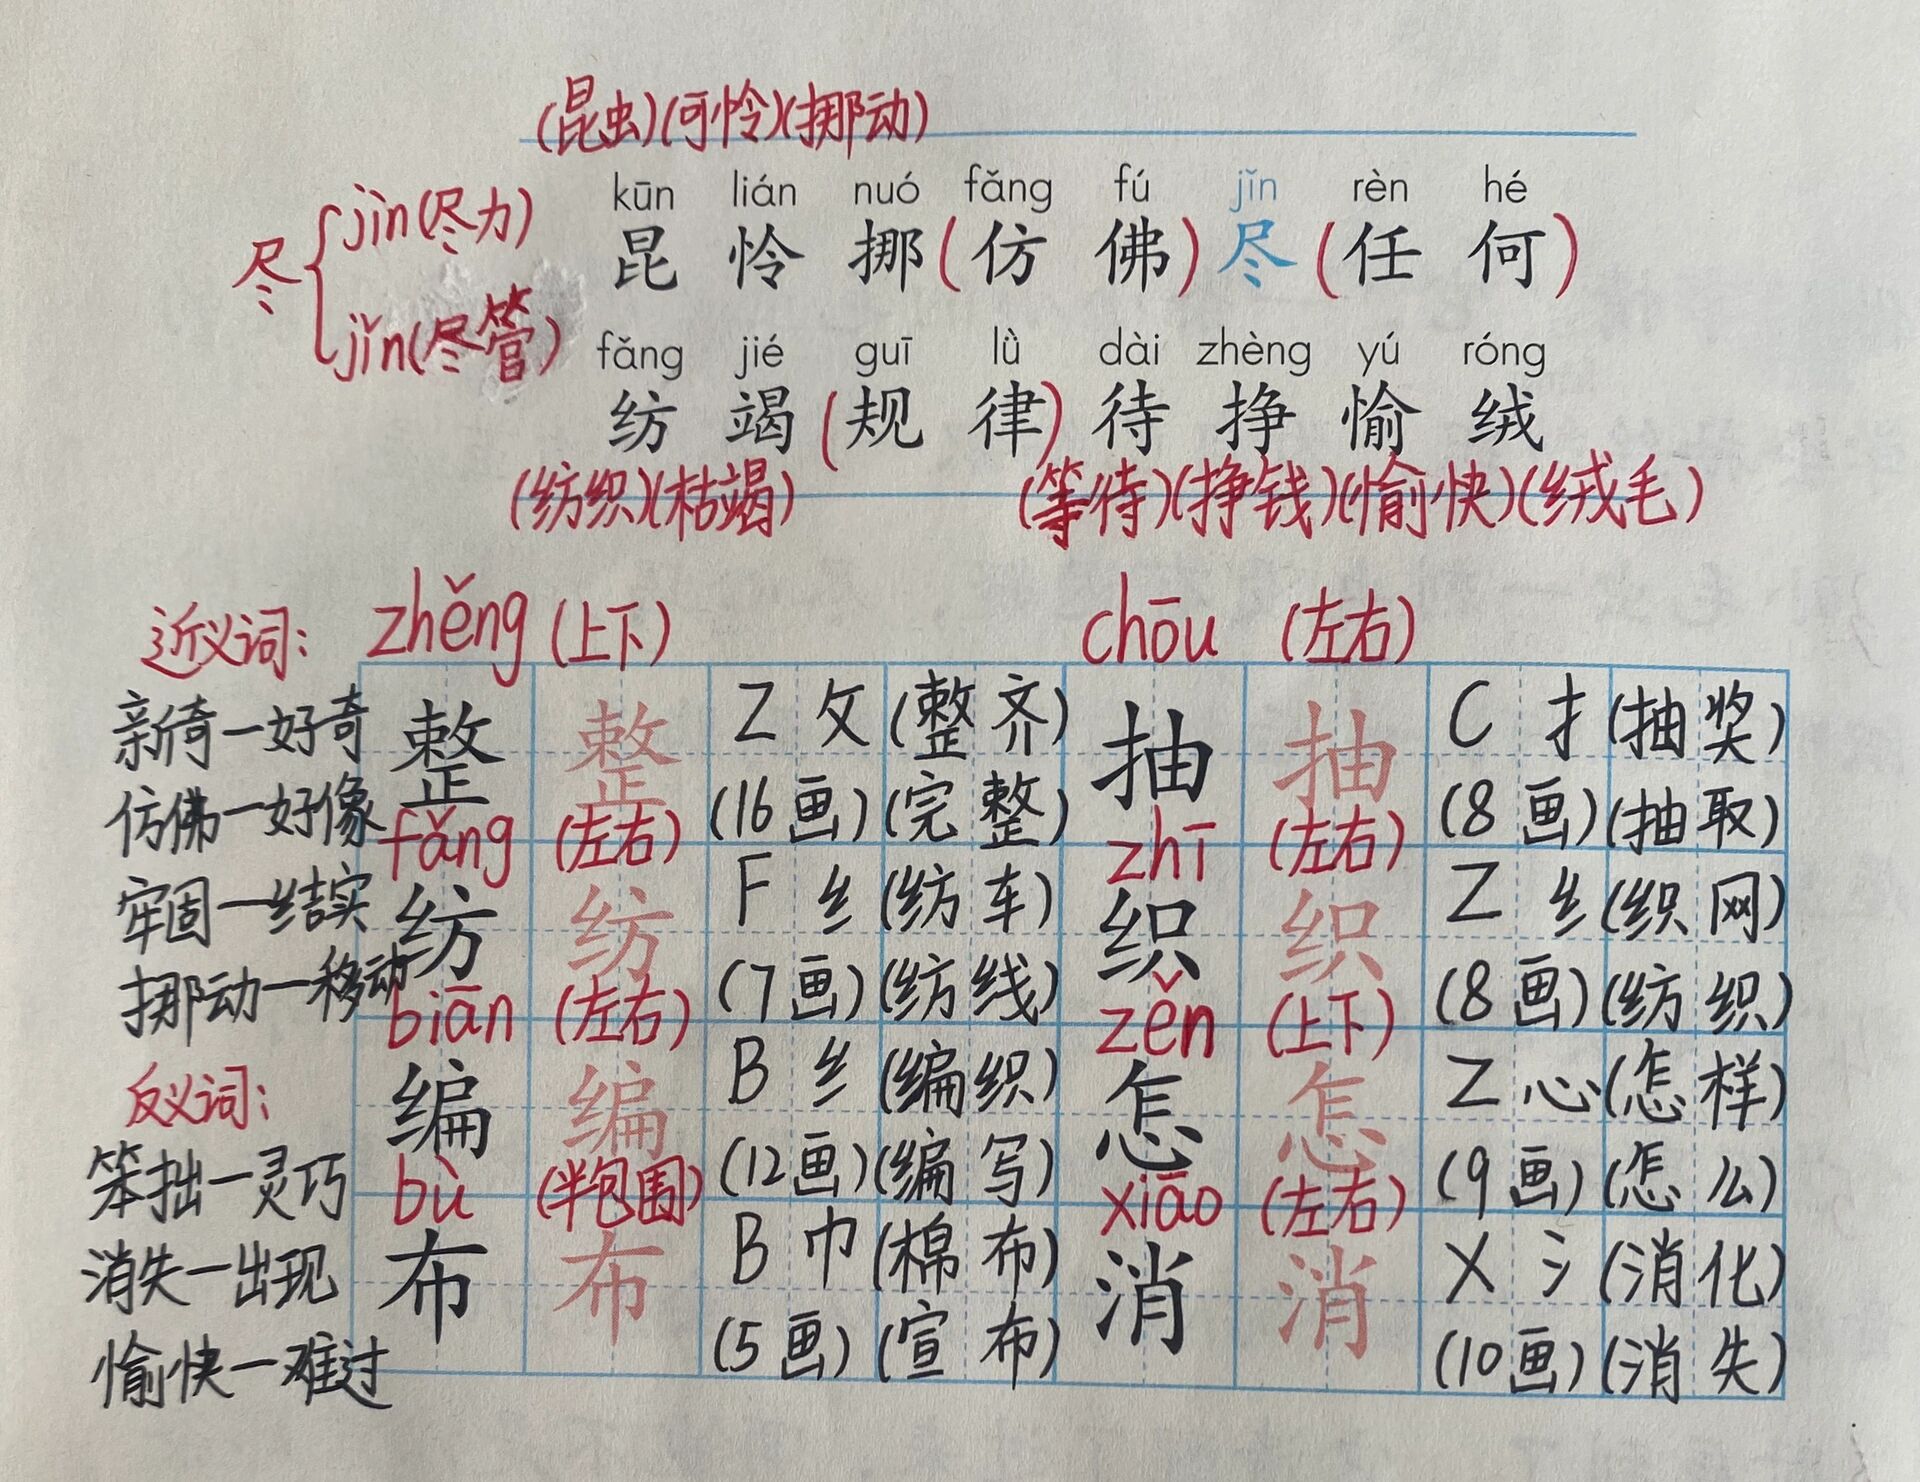 (昆虫)(可怜)(挪动)
kūn lián nuó fǎng fú jǐn rèn hé
昆 怜 挪 (仿 佛) 尽 (任 何)
尽 { jìn(尽力)
jǐn(尽管)
fǎng jié guī lǜ dài zhèng yú róng
纺 竭 (规 律) 待 挣 愉 绒
(纺织)(枯竭) (等待)(挣钱)(愉快)(绒毛)
近义词: zhěng (上下) chōu (左右)
新奇—好奇 整 整 Z 攵 (整齐) 抽 抽 C 扌 (抽奖)
仿佛—好像 (16画) (完整) (8画) (抽取)
fǎng (左右) zhī (左右)
牢固—结实 纺 纺 F 纟 (纺车) 织 织 Z 纟 (织网)
挪动—移动 (7画) (纺线) (8画) (纺织)
biān (左右) zěn (上下)
反义词: 编 编 B 纟 (编织) 怎 怎 Z 心 (怎样)
笨拙—灵巧 (12画) (编写) (9画) (怎么)
bù (半包围) xiāo (左右)
消失—出现 布 布 B 巾 (棉布) 消 消 X 氵 (消化)
愉快—难过 (5画) (宣布) (10画) (消失)